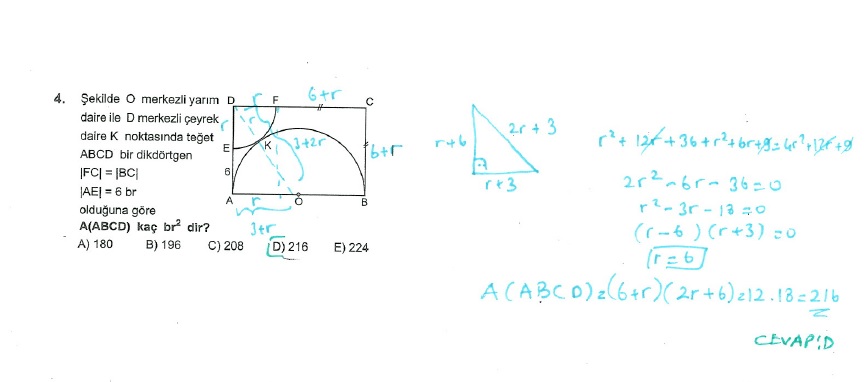 4. Şekilde O merkezli yarım
daire ile D merkezli çeyrek
daire K noktasında teğet
ABCD bir dikdörtgen
|FC| = |BC|
|AE| = 6 br
olduğuna göre
A(ABCD) kaç br² dir?
A) 180 B) 196 C) 208 D) 216 E) 224
D r F 6+r C
r r
E K 3+2r 6+r
6
A r O B
3+r
r+6 2r+3
r+3
r²+12r+36+r²+6r+9=4r²+12r+9
2r²-6r-36=0
r²-3r-18=0
(r-6)(r+3)=0
r=6
A(ABCD)=(6+r)(2r+6)=12.18=216
CEVAP:D